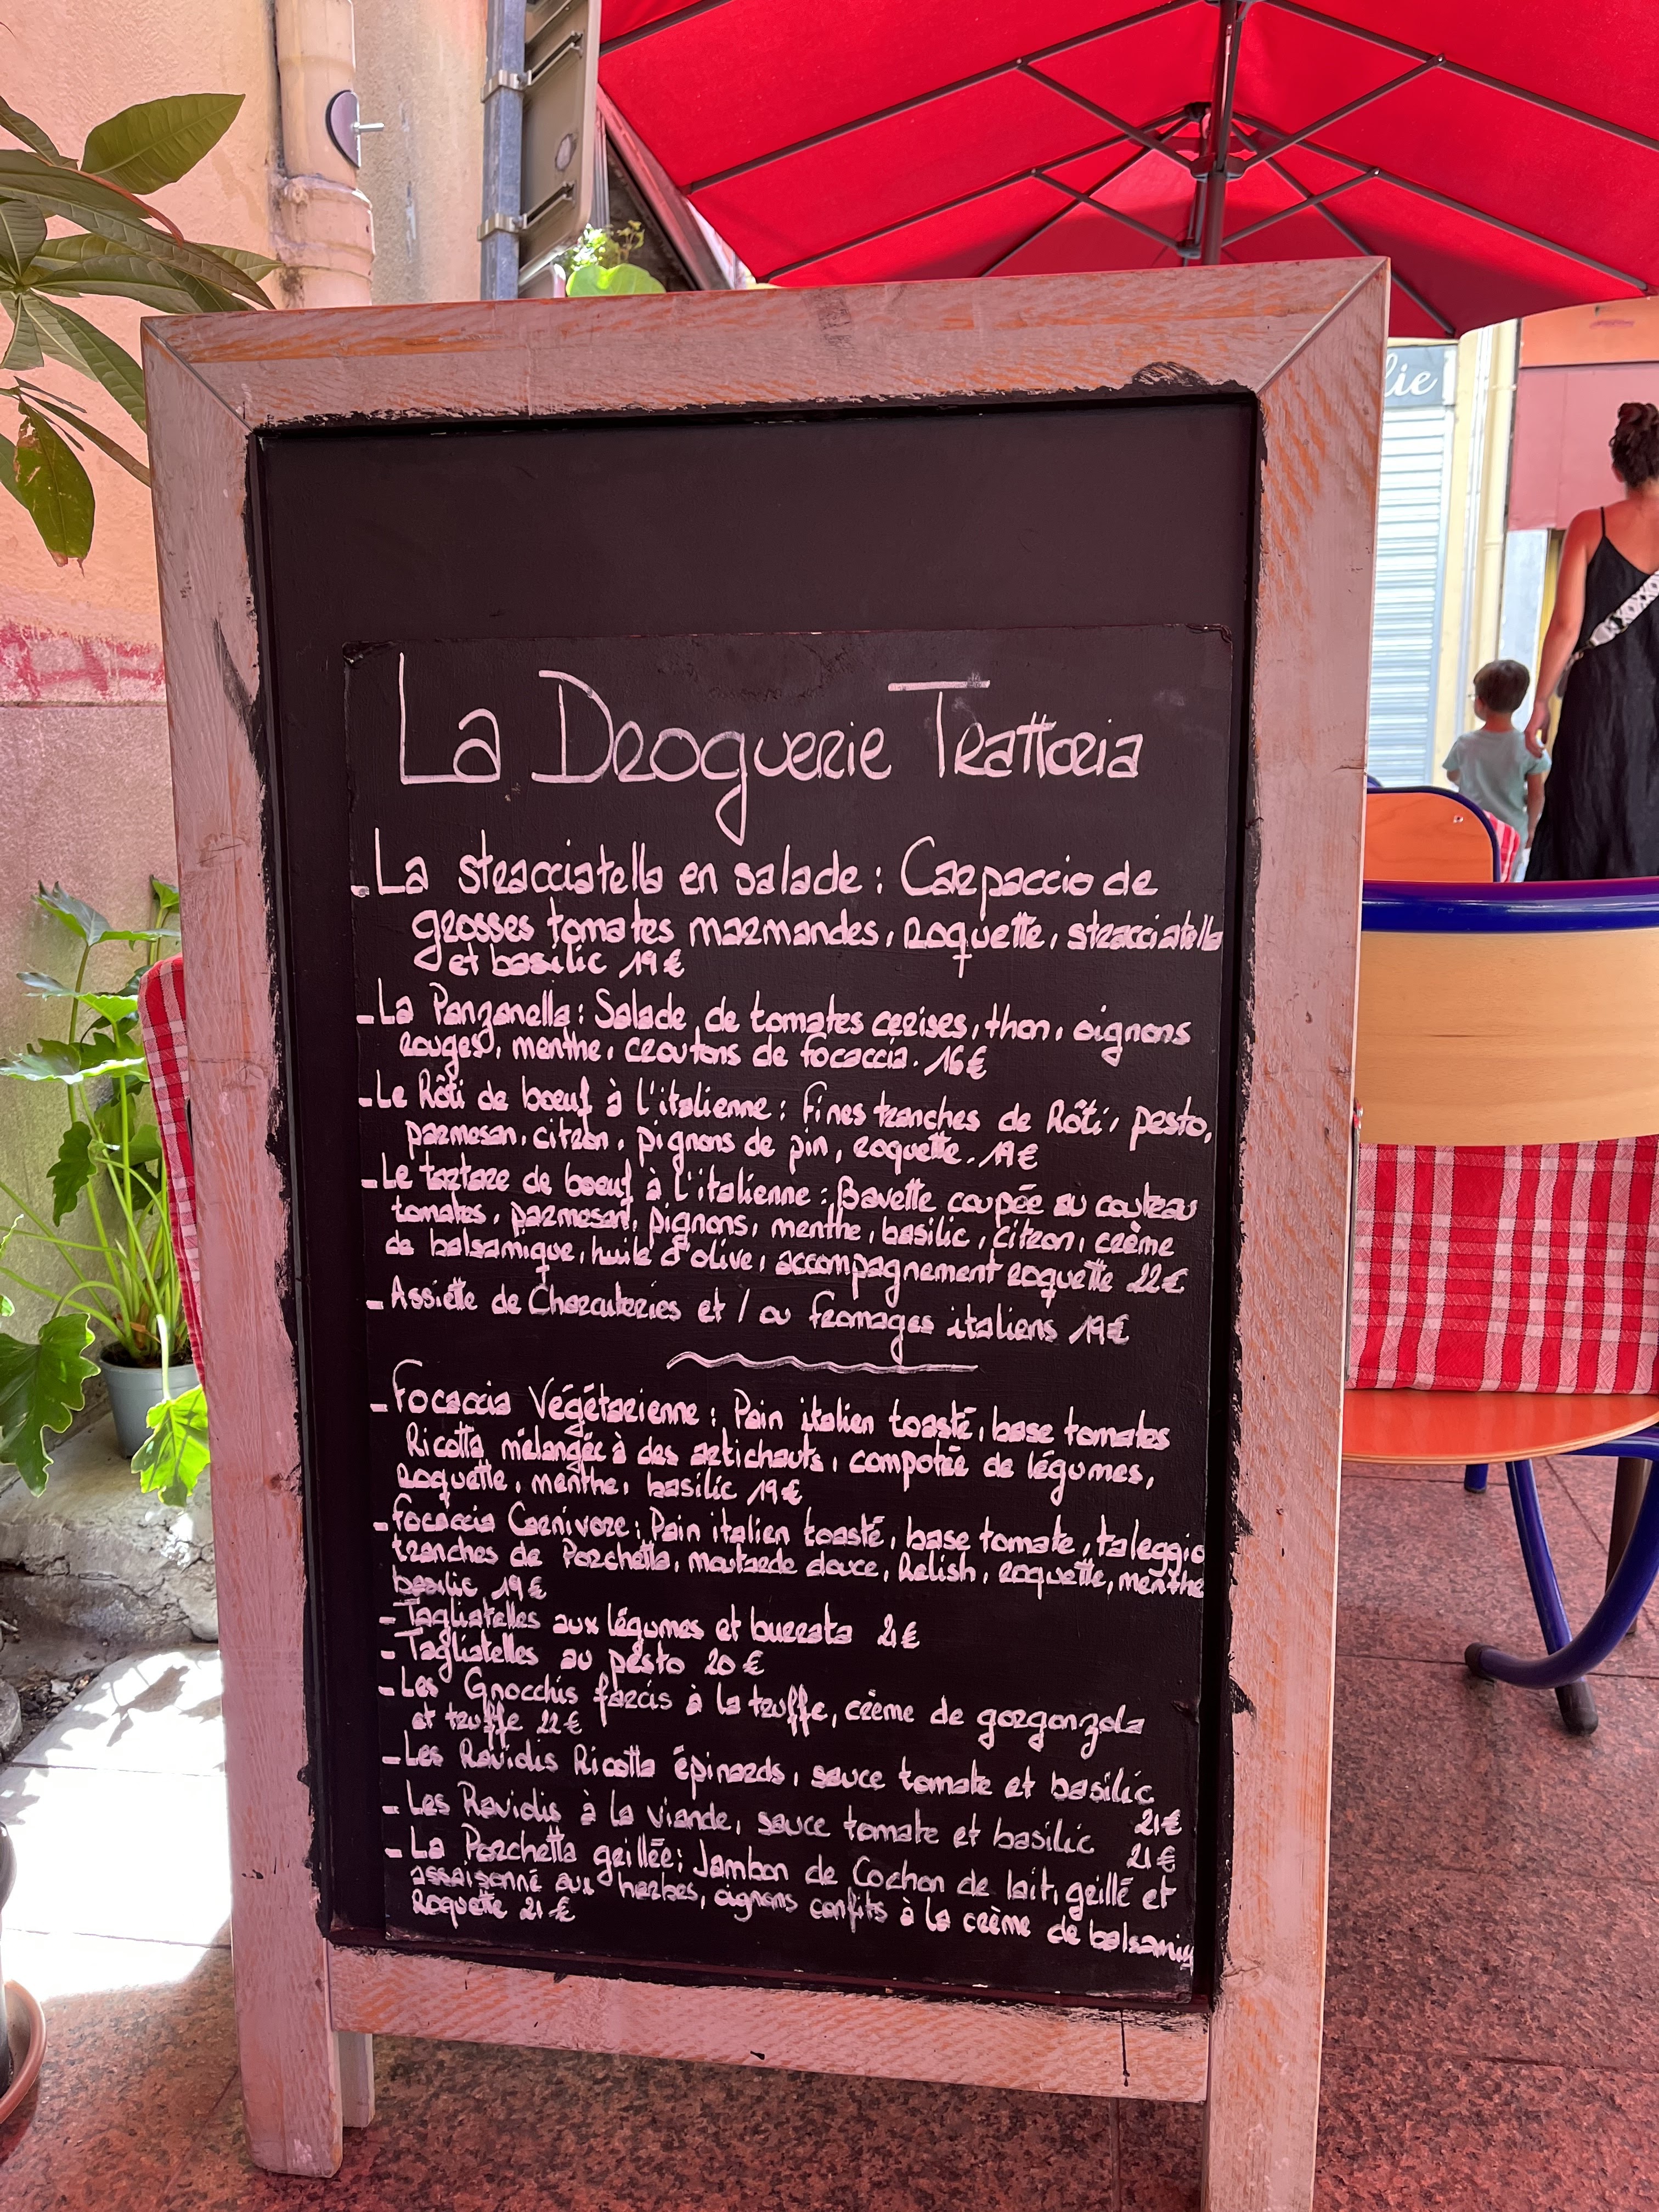 lie
La Droguerie Trattoria
- La stracciatella en salade : Carpaccio de
grosses tomates marmandes, roquette, stracciatella
et basilic 19€
- La Panzanella : Salade de tomates cerises, thon, oignons
rouges, menthe, croutons de focaccia. 16€
- Le Rôti de boeuf à l'italienne : fines tranches de Rôti, pesto,
parmesan, citron, pignons de pin, roquette. 19€
- Le tartare de boeuf à l'italienne : Bavette coupée au couteau
tomates, parmesan, pignons, menthe, basilic, citron, crème
de balsamique, huile d'olive, accompagnement roquette 22€
- Assiette de Charcuteries et / ou fromages italiens 19€
- Focaccia Végétarienne : Pain italien toasté, base tomates
Ricotta mélangée à des artichauts, compotée de légumes,
roquette, menthe, basilic 19€
- Focaccia Carnivore : Pain italien toasté, base tomate, taleggio
tranches de Porchetta, moutarde douce, Relish, roquette, menthe
basilic 19€
- Tagliatelles aux légumes et burrata 21€
- Tagliatelles au pesto 20€
- Les Gnocchis farcis à la truffe, crème de gorgonzola
et truffe 22€
- Les Raviolis Ricotta épinards, sauce tomate et basilic
21€
- Les Raviolis à la viande, sauce tomate et basilic 21€
- La Porchetta grillée : Jambon de Cochon de lait, grillé et
assaisonné aux herbes, oignons confits à la crème de balsamiq
Roquette 21€